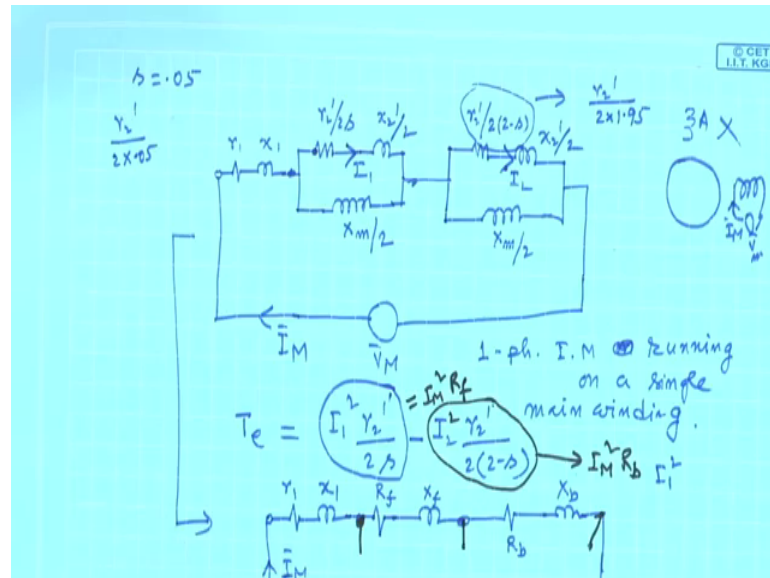 © CET
I.I.T. KG
s = .05
r₂'/2×.05
r₁ x₁
r₂'/2s x₂'/2
I₁
Xm/2
r₂'/2(2-s) x₂'/2
I₂
Xm/2
→ r₂'/2×1.95
3A X
I_M
V_m
Ī_M V̄_M
1-ph. I.M running
on a single
main winding.
= I_M² R_f
Te = I₁² r₂'/2s - I₂² r₂'/2(2-s) → I_M² R_b I₁²
r₁ x₁ R_f x_f R_b X_b
Ī_M